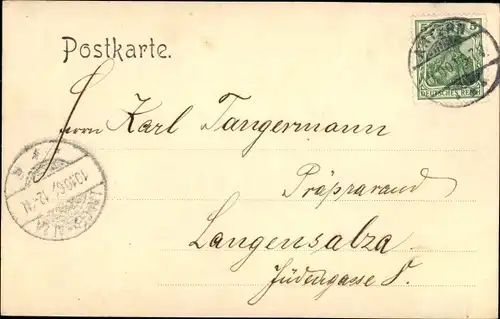 Postkarte.
5 5
ARTERN
DEUTSCHES REICH
Herrn Karl Tangermann
Präparand
Langensalza
Jüdengasse 8.
LANGENSALZA
10.10.06. 12-1N